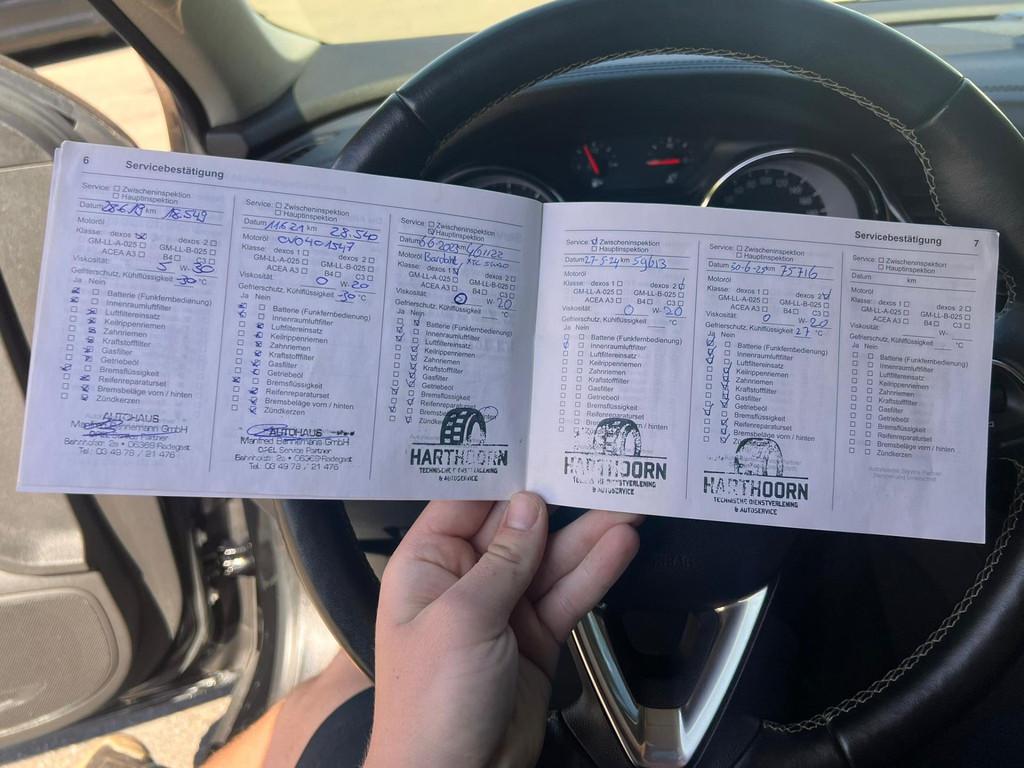 6 Servicebestätigung
Service: ☐ Zwischeninspektion
☐ Hauptinspektion
Datum 28.6.19 km 18.549
Motoröl
Klasse: dexos ☒ dexos 2 ☐
GM-LL-A-025 ☐ GM-LL-B-025 ☐
ACEA A3 ☐ B4 ☐ C3 ☐
Viskosität: 5 W- 30
Gefrierschutz, Kühlflüssigkeit -30 °C
Ja Nein
Batterie (Funkfernbedienung)
Innenraumluftfilter
Luftfiltereinsatz
Keilrippenriemen
Zahnriemen
Kraftstofffilter
Gasfilter
Getriebeöl
Bremsflüssigkeit
Reifenreparaturset
Bremsbeläge vorn / hinten
Zündkerzen
AUTOHAUS
Manfred Bannemann GmbH
OPEL Service Partner
Bahnholstr. 2a • 06369 Radegast
Tel.: 03 49 78 / 21 476
Service: ☐ Zwischeninspektion
☐ Hauptinspektion
Datum 11.6.21 km 28.540
Motoröl CVO401547
Klasse: dexos 1 ☐ dexos 2 ☐
GM-LL-A-025 ☐ GM-LL-B-025 ☐
ACEA A3 ☐ B4 ☐ C3 ☐
Viskosität: 0 W- 20
Gefrierschutz, Kühlflüssigkeit -30 °C
Ja Nein
Batterie (Funkfernbedienung)
Innenraumluftfilter
Luftfiltereinsatz
Keilrippenriemen
Zahnriemen
Kraftstofffilter
Gasfilter
Getriebeöl
Bremsflüssigkeit
Reifenreparaturset
Bremsbeläge vorn / hinten
Zündkerzen
AUTOHAUS
Manfred Bannemann GmbH
OPEL Service Partner
Bahnholstr. 2a • 06369 Radegast
Tel.: 03 49 78 / 21 476
Service: ☐ Zwischeninspektion
☑ Hauptinspektion
Datum km
Motoröl
Klasse: dexos 1 dexos 2 ☐
GM-LL-A-025 ☐ GM-LL-B-025 ☐
ACEA A3 ☐ B4 ☐ C3 ☐
Viskosität: 0 W- 20
Gefrierschutz, Kühlflüssigkeit °C
Ja Nein
Batterie (Funkfernbedienung)
Innenraumluftfilter
Luftfiltereinsatz
Keilrippenriemen
Zahnriemen
Kraftstofffilter
Gasfilter
Getriebeöl
Bremsflüssigkeit
Reifenreparaturset
HARTHOORN
TECHNISCHE DIENSTVERLENING
& AUTOSERVICE
Servicebestätigung 7
Service: ☑ Zwischeninspektion
☐ Hauptinspektion
Datum 27-5-24 km 59613
Motoröl
Klasse: dexos 1 ☐ dexos 2 ☑
GM-LL-A-025 ☐ GM-LL-B-025 ☐
ACEA A3 ☐ B4 ☐ C3 ☐
Viskosität: 0 W- 20
Gefrierschutz, Kühlflüssigkeit °C
Ja Nein
Batterie (Funkfernbedienung)
Innenraumluftfilter
Luftfiltereinsatz
Keilrippenriemen
Zahnriemen
Kraftstofffilter
Gasfilter
Getriebeöl
Bremsflüssigkeit
Reifenreparaturset
Bremsbeläge vorn / hinten
HARTHOORN
TECHNISCHE DIENSTVERLENING
& AUTOSERVICE
Service: ☐ Zwischeninspektion
☐ Hauptinspektion
Datum 30-6-25 km 75716
Motoröl
Klasse: dexos 1 ☐ dexos 2 ☑
GM-LL-A-025 ☐ GM-LL-B-025 ☐
ACEA A3 ☐ B4 ☐ C3 ☐
Viskosität: 0 W- 20
Gefrierschutz, Kühlflüssigkeit 27 °C
Ja Nein
Batterie (Funkfernbedienung)
Innenraumluftfilter
Luftfiltereinsatz
Keilrippenriemen
Zahnriemen
Kraftstofffilter
Gasfilter
Getriebeöl
Bremsflüssigkeit
Reifenreparaturset
Bremsbeläge vorn / hinten
Zündkerzen
HARTHOORN
TECHNISCHE DIENSTVERLENING
& AUTOSERVICE
Service: ☐ Zwischeninspektion
☐ Hauptinspektion
Datum km
Motoröl
Klasse: dexos 1 ☐ dexos 2 ☐
GM-LL-A-025 ☐ GM-LL-B-025 ☐
ACEA A3 ☐ B4 ☐ C3 ☐
Viskosität: W-
Gefrierschutz, Kühlflüssigkeit °C
Ja Nein
☐ ☐ Batterie (Funkfernbedienung)
☐ ☐ Innenraumluftfilter
☐ ☐ Luftfiltereinsatz
☐ ☐ Keilrippenriemen
☐ ☐ Zahnriemen
☐ ☐ Kraftstofffilter
☐ ☐ Gasfilter
☐ ☐ Getriebeöl
☐ ☐ Bremsflüssigkeit
☐ ☐ Reifenreparaturset
☐ ☐ Bremsbeläge vorn / hinten
☐ ☐ Zündkerzen